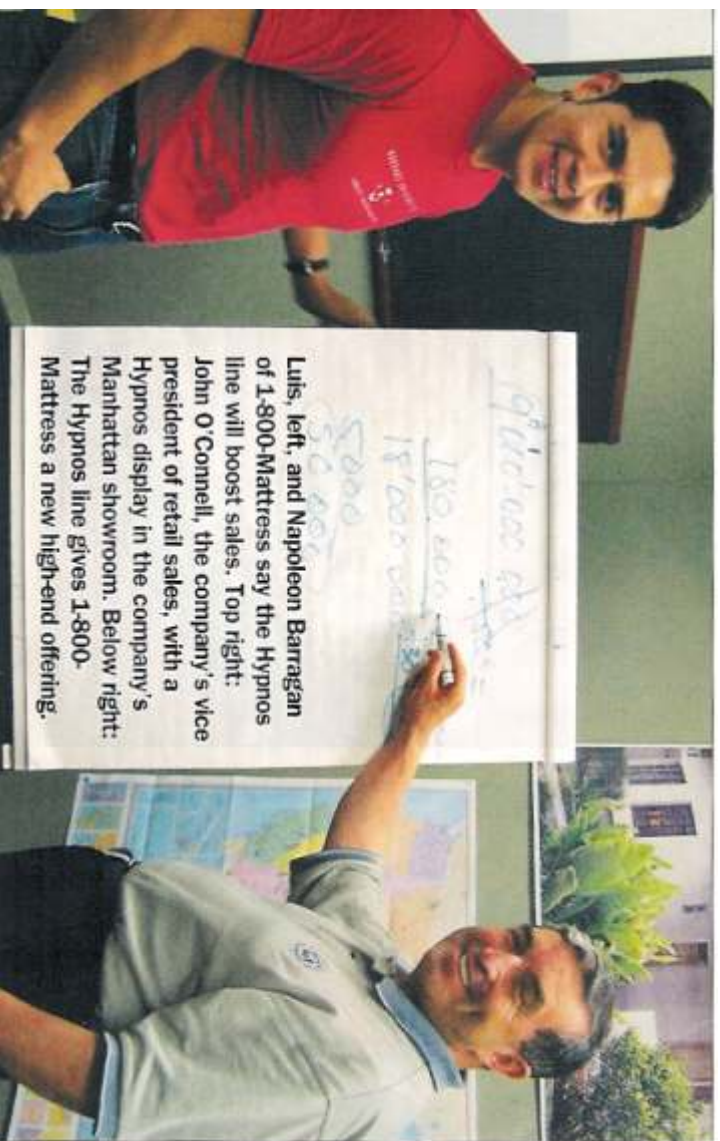 180 000
18'000 000
5000
50 000
Luis, left, and Napoleon Barragan
of 1-800-Mattress say the Hypnos
line will boost sales. Top right:
John O'Connell, the company's vice
president of retail sales, with a
Hypnos display in the company's
Manhattan showroom. Below right:
The Hypnos line gives 1-800-
Mattress a new high-end offering.